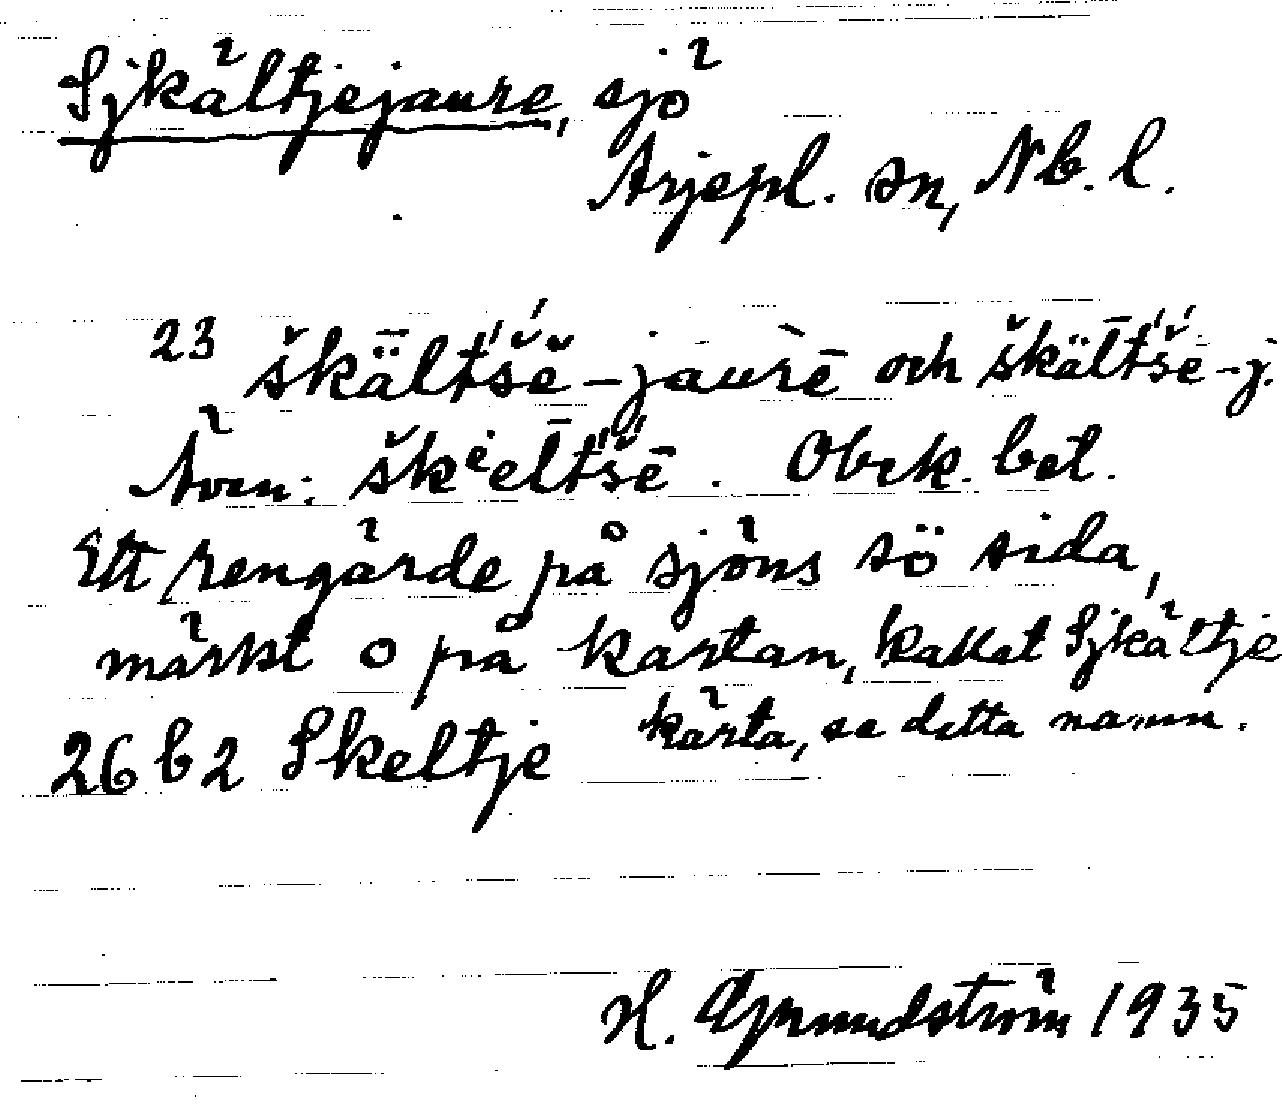 Sjkältjejaure, sjö
Arjepl. sn, Nb. l.
23 škäl̄t'š'ĕ-jaùrē och škäl̄t'š'ē-j.
Även: škᵉel̄t'š'ē. Obek. bet.
Ett rengärde på sjöns sö sida,
märkt o på kartan, kallat Sjkältje
kärta, se detta namn.
26 b 2 Skeltje
H. Grundström 1935